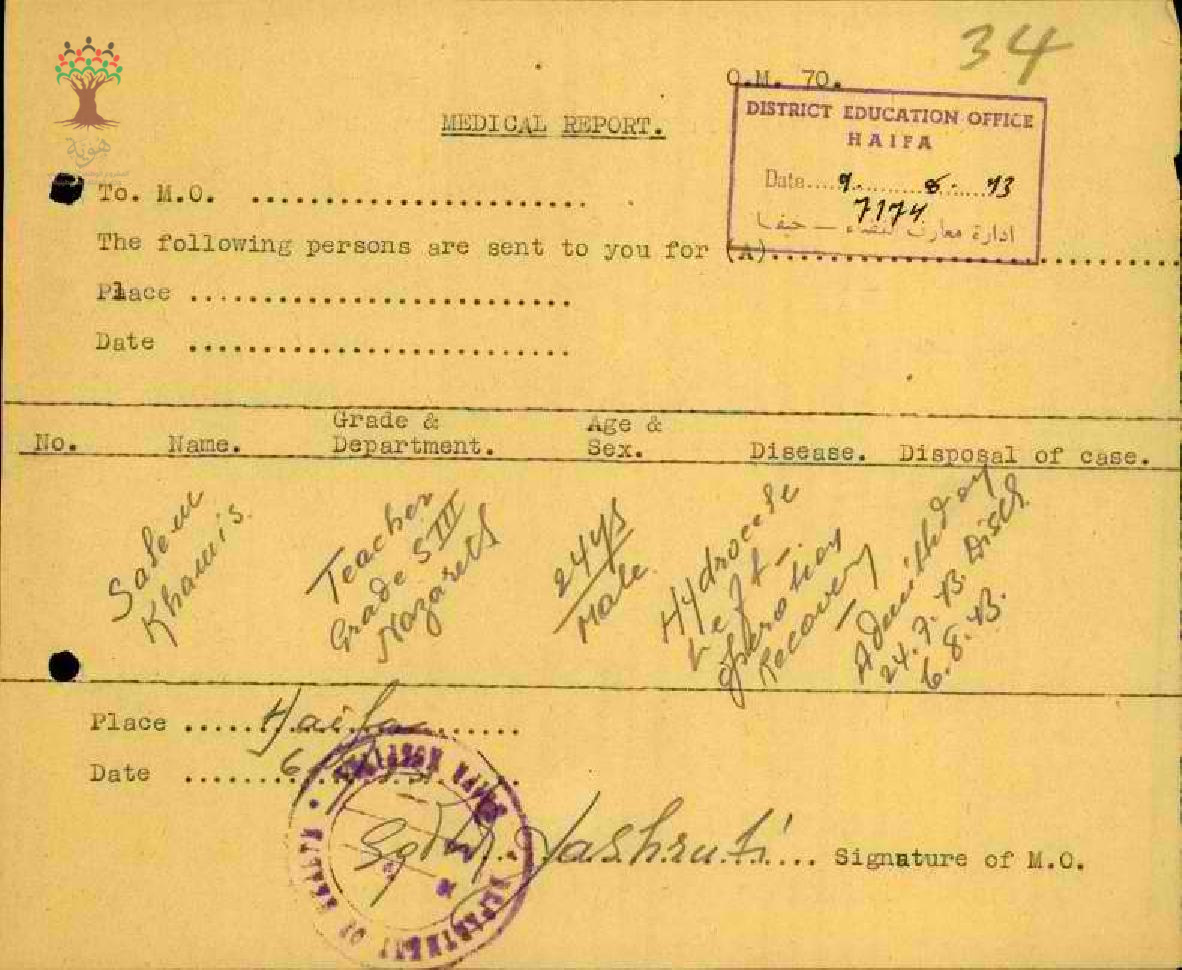 34
O.M. 70.
MEDICAL REPORT.
DISTRICT EDUCATION OFFICE
HAIFA
Date....9........8...43
7174
ادارة معارف لواء — حيفا
هوية
To. M.O. .......................
The following persons are sent to you for (A)............................
Place ..........................
Date ..........................
No. Name. Grade & Department. Age & Sex. Disease. Disposal of case.
Salem
Khamis.
Teacher
Grade S III
Nazareth
24 ys
Male
Hydrocele
Left -
operation
Recovery
Admitted on
24.7.43. Disch
6.8.43.
Place ......Haifa......
Date ......6
HAIFA HOSPITAL
DEPARTMENT OF HEALTH
Sgd Yashruti.... Signature of M.O.